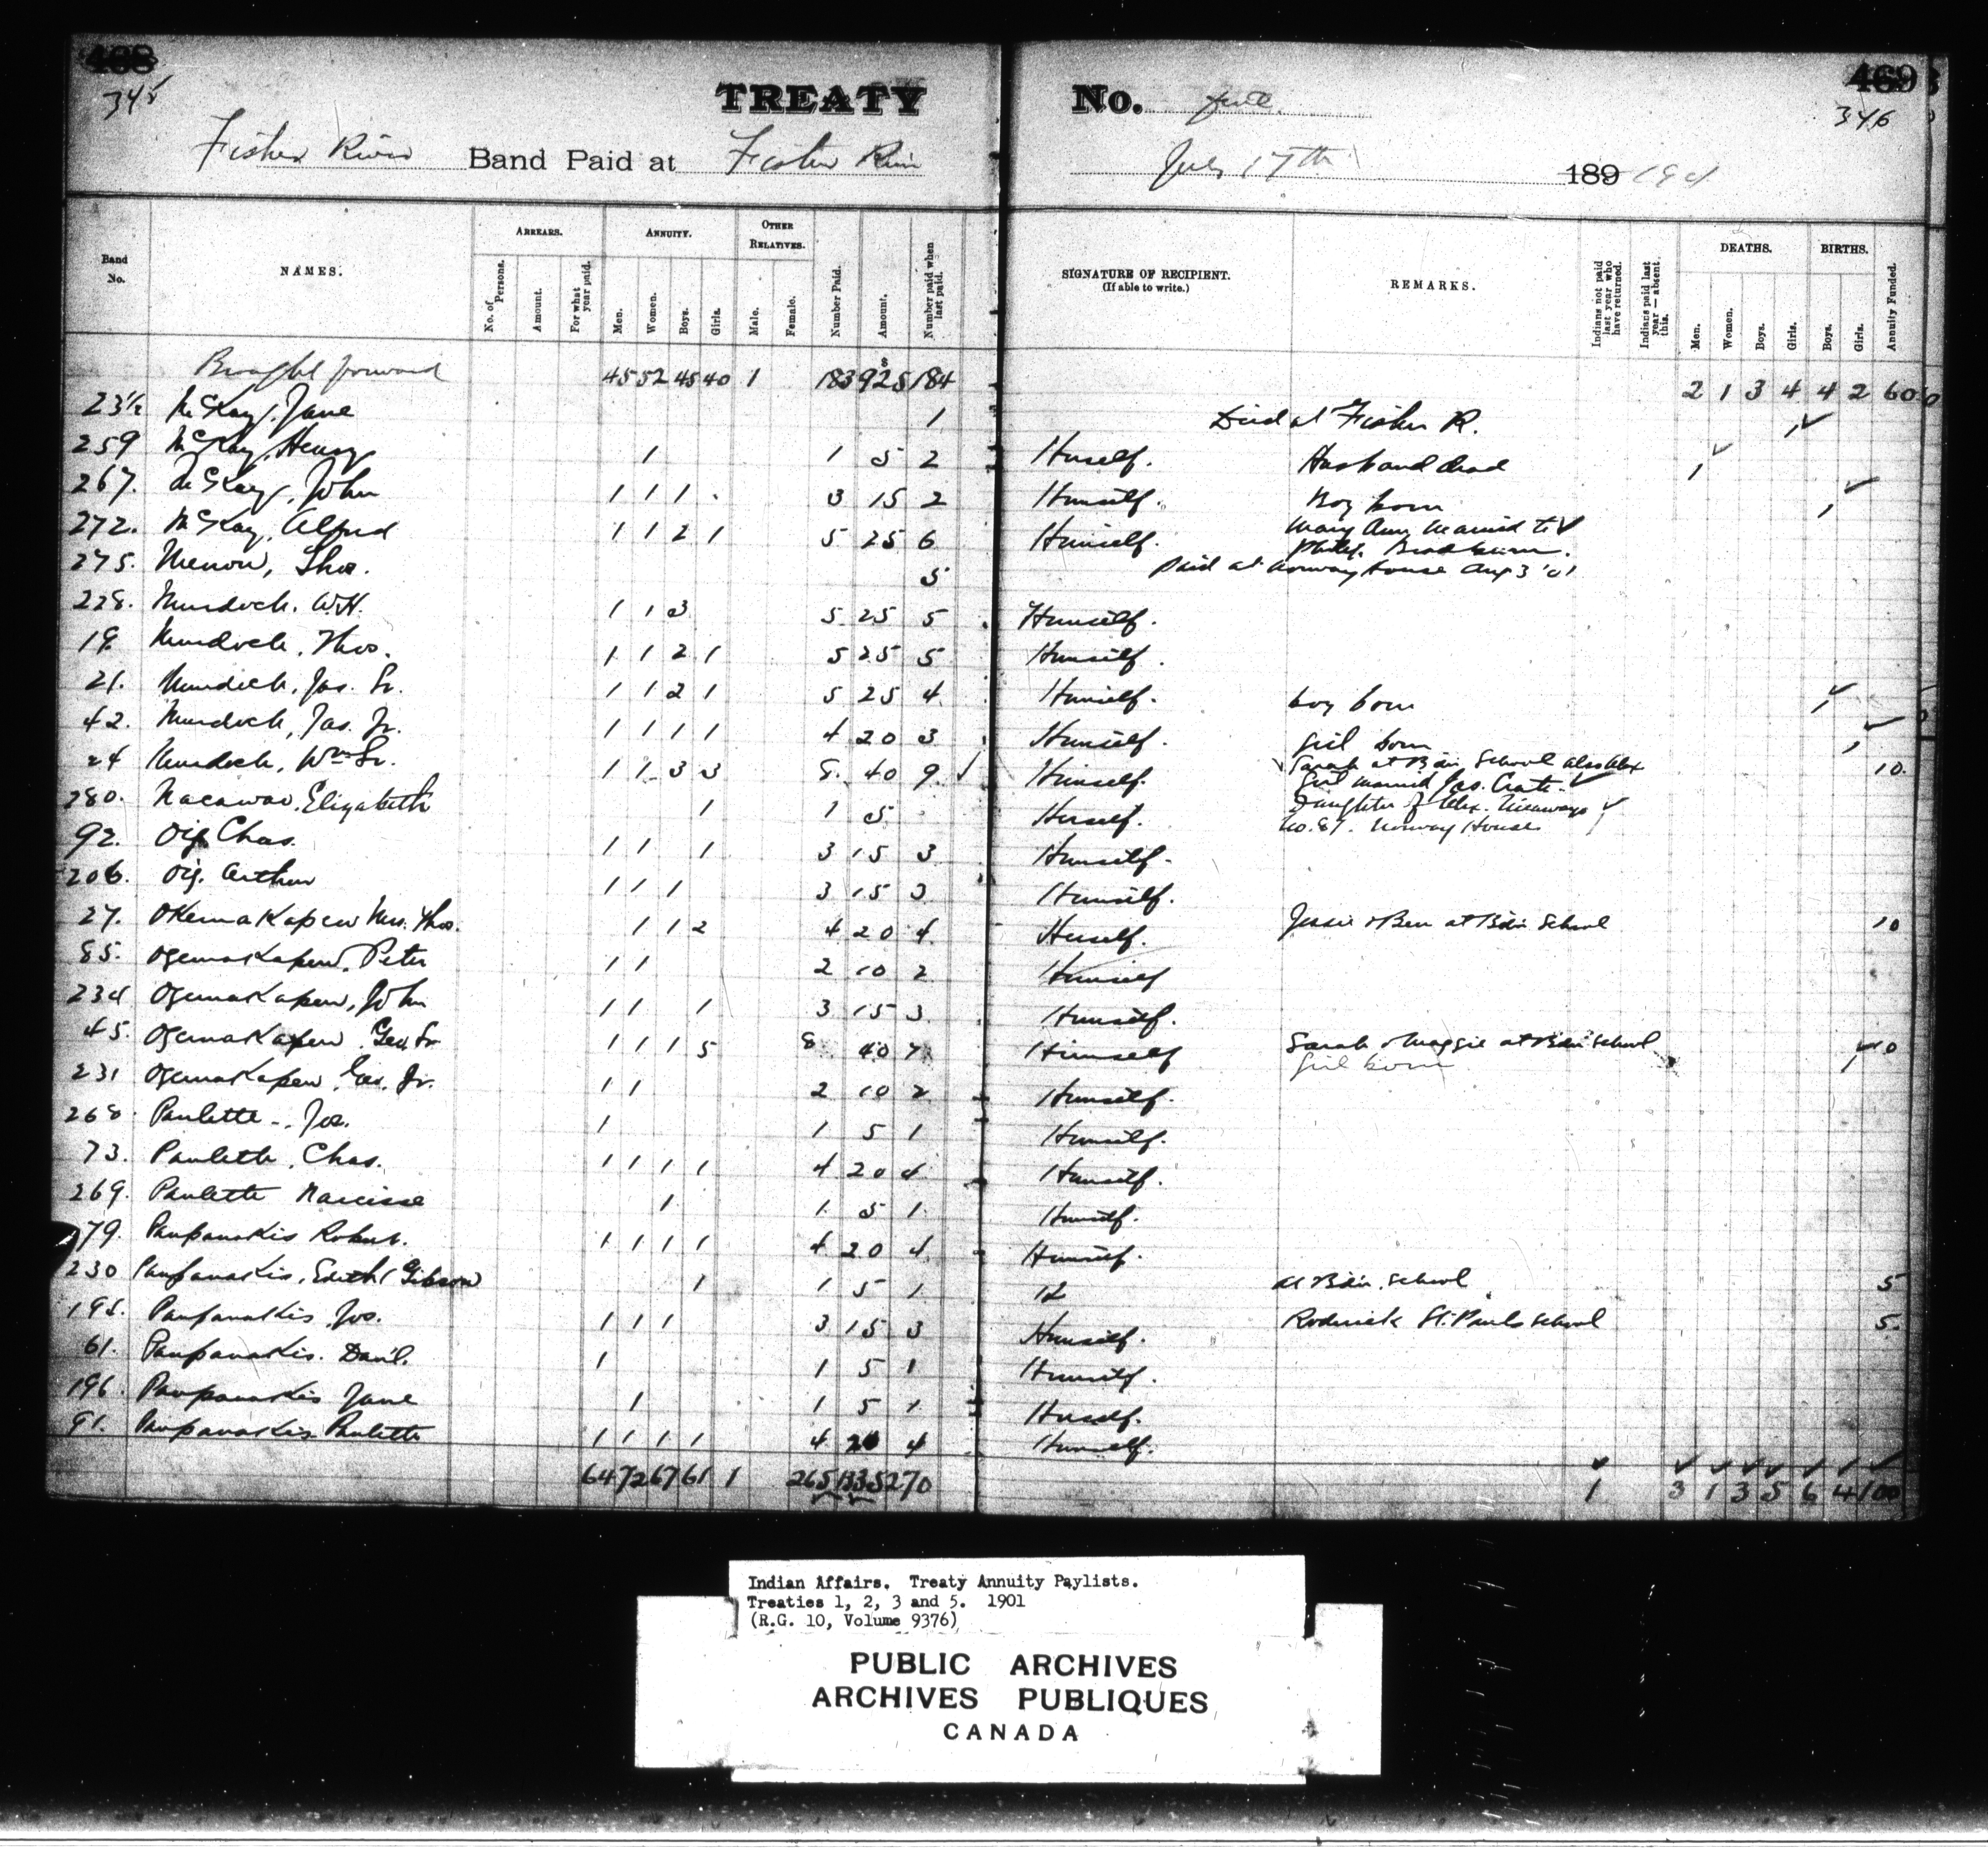 468 469
345 TREATY No. five 346
Fisher River Band Paid at Fisher River July 17th 189 1901
Band No. NAMES. ARREARS. No. of Persons. Amount. For what year paid. ANNUITY. Men. Women. Boys. Girls. OTHER RELATIVES. Male. Female. Number Paid. Amount. Number paid when last paid. SIGNATURE OF RECIPIENT. (If able to write.) REMARKS. Indians not paid last year who have returned. Indians paid last year — absent this. DEATHS. Men. Women. Boys. Girls. BIRTHS. Boys. Girls. Annuity Funded.
Brought forward 45 52 45 40 1 183 925 184 2 1 3 4 4 2 60
23½ McKay, Jane 1 Died at Fisher R. 1
259 McKay, Henry 1 1 5 2 Herself. Husband dead 1
267. McKay, John 1 1 1 3 15 2 Himself. Boy born 1
272. McKay, Alfred 1 1 2 1 5 25 6 Himself. Mary Ann married to
Philip
275. Menow, Thos. 5 Paid at Norway House Aug 3 '01
228. Murdock. W.H. 1 1 3 5 25 5 Himself.
19. Murdock, Thos. 1 1 2 1 5 25 5 Himself.
21. Murdock, Jas. Sr. 1 1 2 1 5 25 4 Himself. boy born 1
42. Murdock, Jas. Jr. 1 1 1 1 4 20 3 Himself. girl born 1
24 Murdock, Wm Sr. 1 1 3 3 8 40 9 Himself. Sarah at Bdn School also Alex 10.
Girl married Jas. Crate.
280. Nacawao, Elizabeth 1 1 5 Herself. Daughter of Alex.
No. 87. Norway House
92. Oig Chas. 1 1 1 3 15 3 Himself.
206. Oig. Arthur 1 1 1 3 15 3 Himself.
27. Okemakapew Mrs. Thos. 1 1 2 4 20 4 Herself. Jessie & Ben at Bdn School 10
85. Ogemakapew, Peter 1 1 2 10 2 Himself
234 Ogemakapew, John 1 1 1 3 15 3 Himself.
45. Ogemakapew, Geo. Sr 1 1 1 5 8 40 7 Himself Sarah & Maggie at Bdn School 1 10
Girl born
231 Ogemakapew, Geo. Jr. 1 1 2 10 2 Himself.
268. Paulette, Jos. 1 1 5 1 Himself.
73. Paulette, Chas. 1 1 1 1 4 20 4 Himself.
269. Paulette Narcisse 1 1 5 1 Himself.
79. Paupanakis Robert. 1 1 1 1 4 20 4 Himself.
230 Paupanakis, Edith (Gibson) 1 1 5 1 12 At Bdn. School 5
195. Paupanakis, Jos. 1 1 1 3 15 3 Himself. Roderick St. Pauls School 5.
61. Paupanakis. Danl. 1 1 5 1 Himself.
196. Paupanakis Jane 1 1 5 1 Herself.
91. Paupanakis Paulette 1 1 1 1 4 20 4 Himself.
64 72 67 61 1 265 1335 270 1 3 1 3 5 6 4 100
Indian Affairs. Treaty Annuity Paylists.
Treaties 1, 2, 3 and 5. 1901
(R.G. 10, Volume 9376)
PUBLIC ARCHIVES
ARCHIVES PUBLIQUES
CANADA